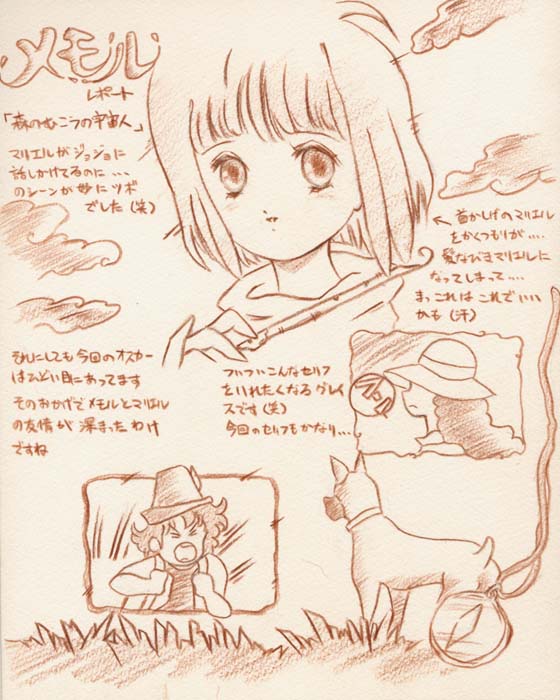 メモル
レポート
「森のむこうの宇宙人」
マリエルがジョジョに
話しかけてるのに...
のシーンが妙にツボ
でした(笑)
← 首かしげのマリエル
をかくつもりが....
髪なびきマリエルに
なってしまって....
まっこれはこれでいい
かも(汗)
それにしても今回のオスカー
はひどい目にあってます
そのおかげでメモルとマリエル
の友情が深まったわけ
ですね
ついついこんなセリフ
をいれたくなるグレイ
スです(笑)
今回のセリフもかなり...
フンッ